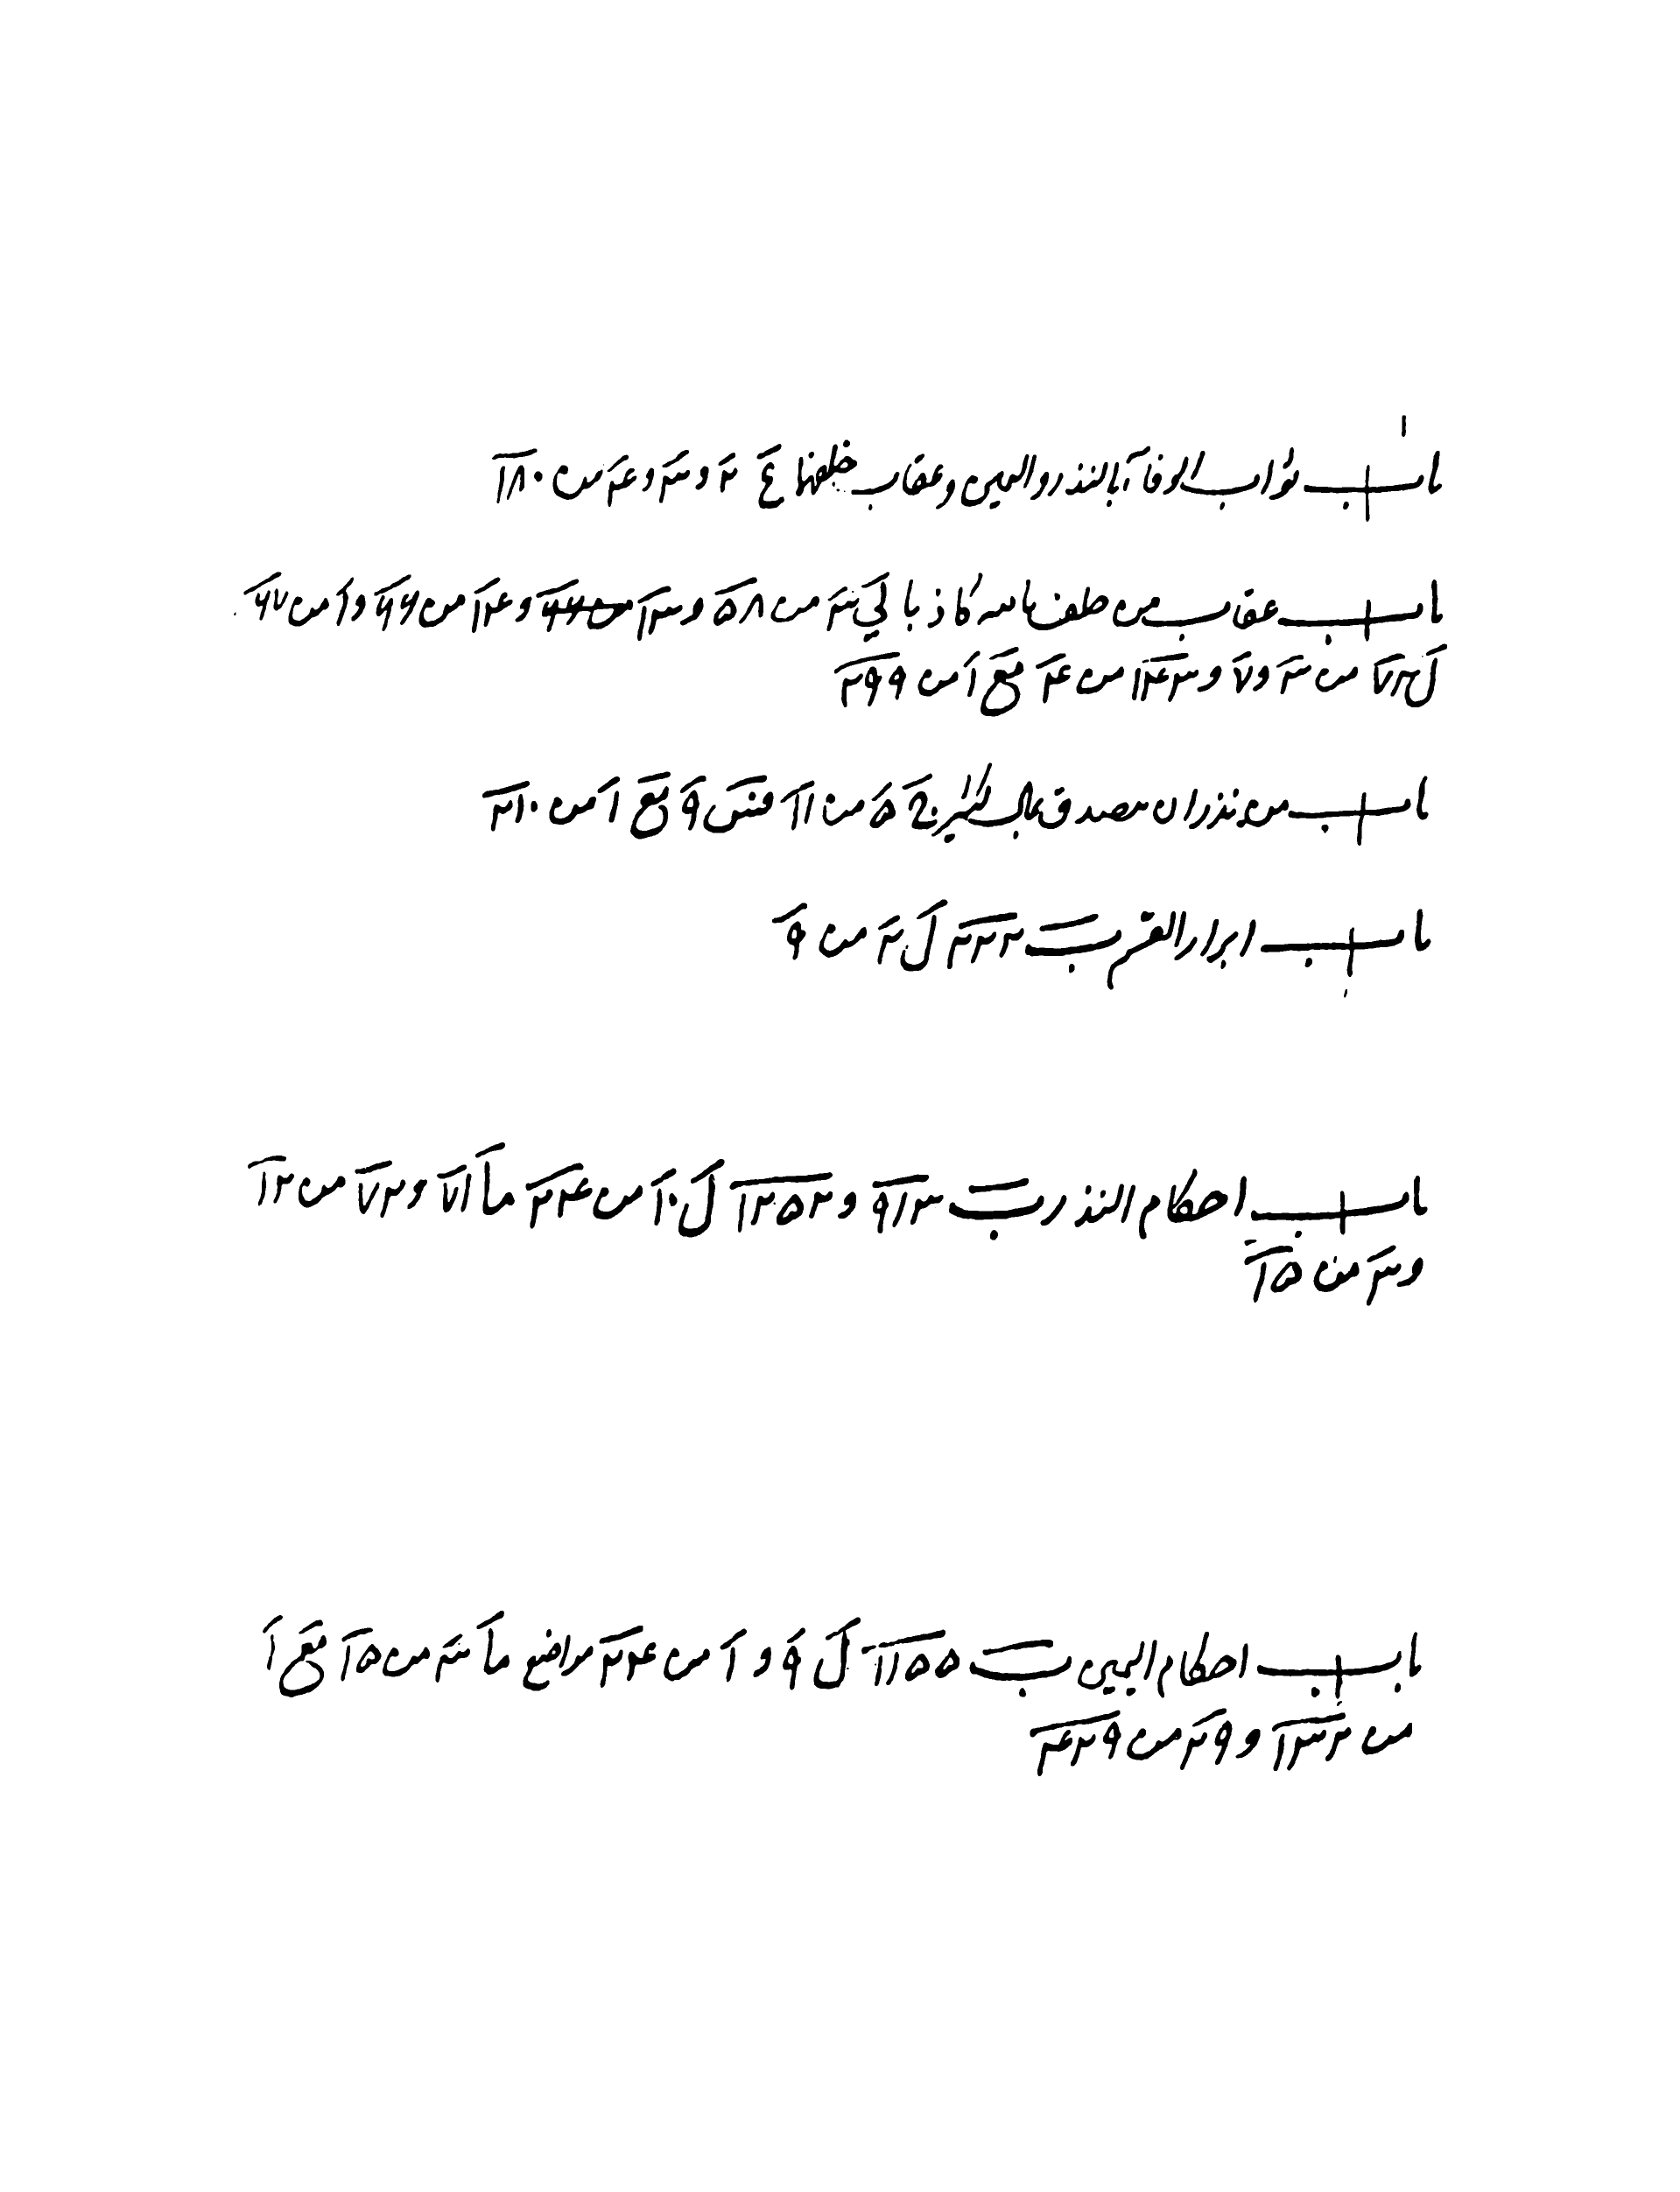 باب ثواب الوفاء بالنذر و اليمين و عقاب خلفهما ع ٢ و ٣ و ٤ من ١٨٠
باب عقاب من حلف بالله كاذبا لي ٣ من ٥٨ و ١٣ من ٦٦ و ١٤ من ٦٦ و ١ من ٦٧
ل ٧٢ من ٣ و ٧ و ١٤٣ من ٤ مع ١ من ٢٩٩
باب من نذر ان يتصدق بمال كثير ٥ من ١١ ٩ مع ١ من ٢١٠
باب ابرار القسم ب ٢٢٢ ل ٢ من ٩
باب احكام النذر ب ٩١٣ و ١٢٥٢ ل ١٠ من ٢٢٤ ما ٧١ و ٧٢ من ١٢
و ٣ من ١٥
باب احكام اليمين ب ١١٥٥ ل ٩ و ١ من ٢٢٤ مواضع ما ٣ من ١٥ مع ١
من ١٣٢ و ٢٩ من ٤٢٩